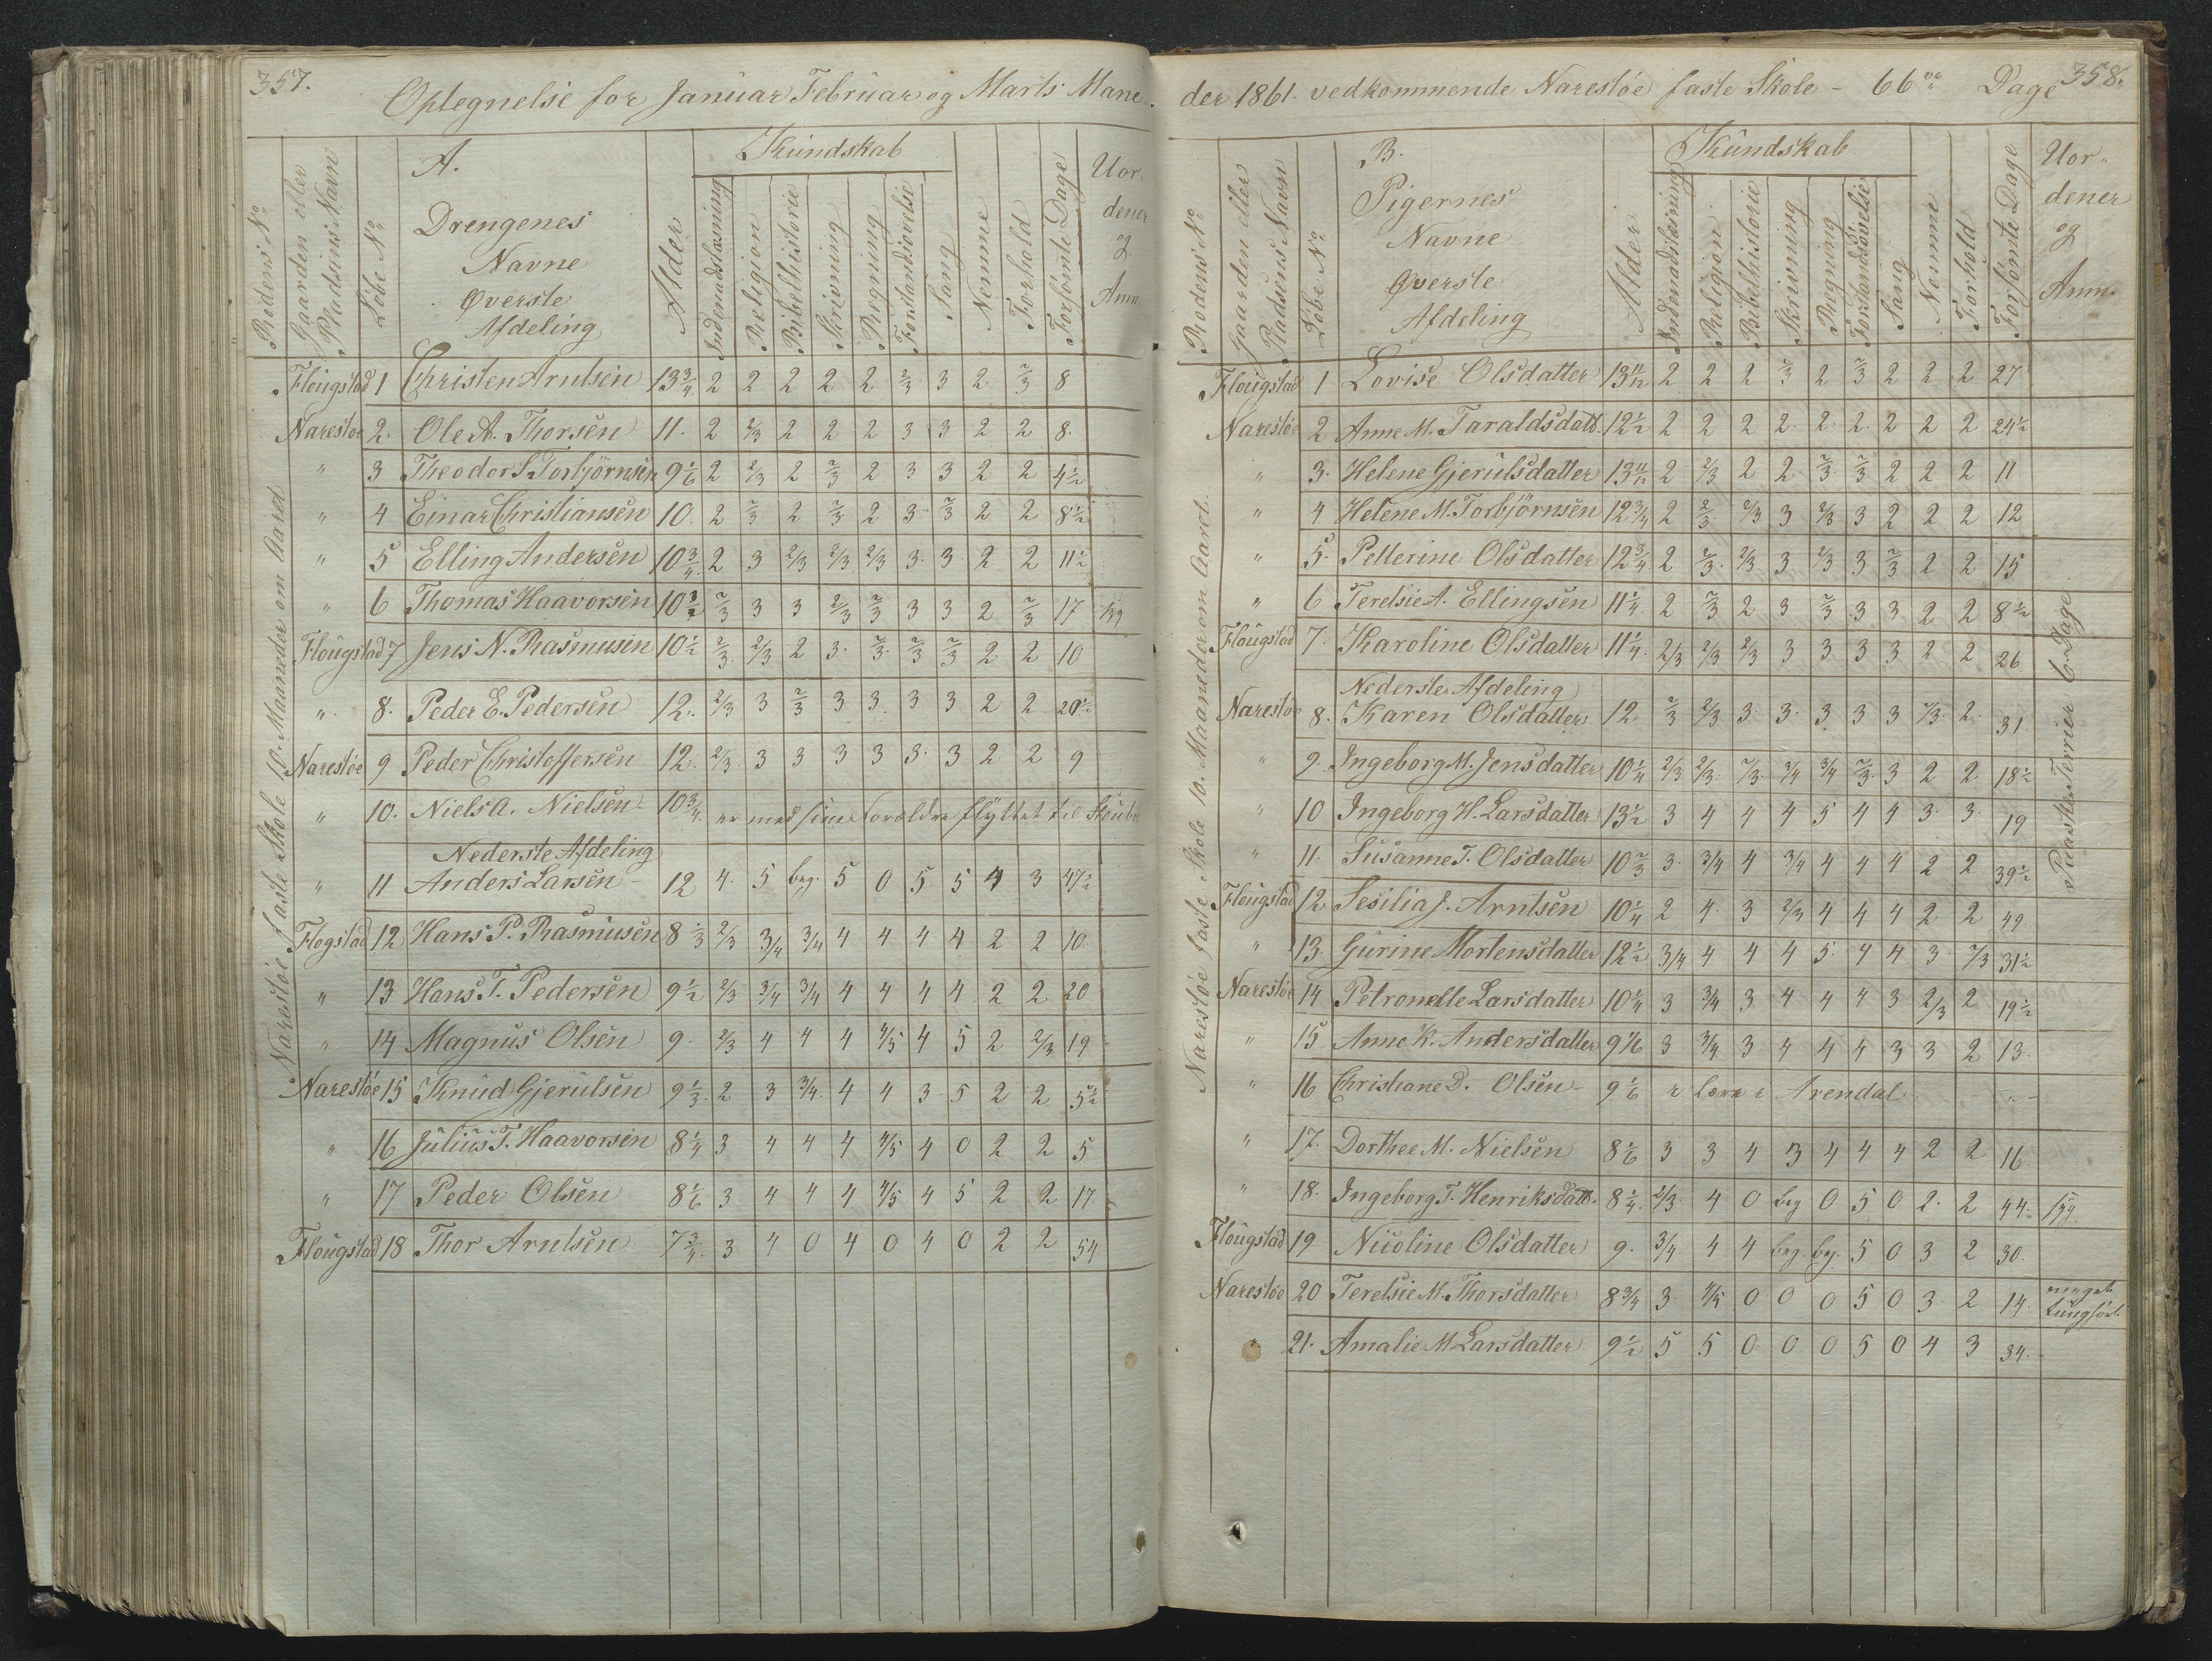 357.
Optegnelse for Januar Februar og Marts Mane-
Rodens No
Gaarden eller Pladsens Navn
Löbe No
A.
Drengenes
Navne
Øverste
Afdeling
Alder
Kundskab
Indenadslæsning
Religion
Bibelhistorie
Skrivning
Regning
Forstandsövelse
Sang
Nemme
Forhold
Forsömte Dage
Uor-
dener
og
Anm.
Narestöe faste Skole 10. Maaneder om Aaret
Flougstad 1 Christen Arntsen 13 3/4 2 2 2 2 2 2/3 3 2 2/3 8
Narestöe 2. Ole A. Thorsen 11. 2 2/3 2 2 2 3 3 2 2 8.
" 3 Theodor S Torbjörnsen 9 1/6 2 2/3 2 2/3 2 3 3 2 2 4 1/2
" 4 Einar Christiansen 10. 2 2/3 2 2/3 2 3 2/3 2 2 8 1/2
" 5 Elling Andersen 10 3/4 2 3 2/3 2/3 2/3 3. 3 2 2 11 1/2
" 6 Thomas Haavorsen 10 1/2 2/3 3 3 2/3 2/3 3 3 2 2/3 17 syg
Flougstad 7 Jens N. Rasmusen 10 1/2 2/3 2/3 2 3. 2/3 2/3 2/3 2 2 10
" 8. Peder E. Pedersen 12. 2/3 3 2/3 3 3 3 3 2 2 20 1/2
Narestöe 9 Peder Christoffersen 12. 2/3 3 3 3 3 3. 3 2 2 9
" 10. Niels A. Nielsen 10 3/4 er med sine Forældre flyttet til
Nederste Afdeling
" 11 Anders Larsen 12 4. 5 beg. 5 0 5 5 4 3 47 1/2
Flogstad 12 Hans P. Rasmusen 8 1/3 2/3 3/4 3/4 4 4 4 4 2 2 10
" 13 Hans T. Pedersen 9 1/2 2/3 3/4 3/4 4 4 4 4 2 2 20
" 14 Magnus Olsen 9. 2/3 4 4 4 4/5 4 5 2 2/3 19
Narestöe 15 Knud Gjerulsen 9 1/3 2 3 3/4 4 4 3 5 2 2 5 1/2
" 16 Julius T. Haavorsen 8 1/4 3 4 4 4 4/5 4 0 2 2 5
" 17 Peder Olsen 8 1/6 3 4 4 4 4/5 4 5 2 2 17
Flougstad 18 Thor Arntsen 7 3/4 3 4 0 4 0 4 0 2 2 54
358.
der 1861. vedkommende Narestöe faste Skole - 66 Dage
Rodens No
Gaarden eller Pladsens Navn
Löbe No
B.
Pigernes
Navne
Øverste
Afdeling
Alder
Kundskab
Indenadslæsning
Religion
Bibelhistorie
Skrivning
Regning
Forstandsövelse
Sang
Nemme
Forhold
Forsömte Dage
Uor-
dener
og
Anm.
Narestöe faste Skole 10. Maaneder om Aaret.
Flougstad 1 Lovise Olsdatter 13 11/12 2 2 2 2/3 2 2/3 2 2 2 27
Narestöe 2 Anne M. Taraldsdatt. 12 1/2 2 2 2 2. 2. 2. 2 2 2 24 1/2
" 3. Helene Gjerulsdatter 13 11/12 2 2/3 2 2 2/3 2/3 2 2 2 11
" 4 Helene M. Torbjörnsen 12 3/4 2 2/3 2/3 3 2/3 3 2 2 2 12
" 5. Pellerine Olsdatter 12 3/4 2 2/3 2/3 3 2/3 3 2/3 2 2 15
" 6 Terelsie A. Ellingsen 11 1/4 2 2/3 2 3 2/3 3 3 2 2 8 1/2
Flougstad 7. Karoline Olsdatter 11 1/4 2/3 2/3 2/3 3 3 3 3 2 2 26
Nederste Afdeling
Narestöe 8. Karen Olsdatter 12 2/3 2/3 3. 3. 3 3 3 2/3 2. 31
" 9. Ingeborg M. Jensdatter 10 1/4 2/3 2/3 2/3 3/4 3/4 2/3 3 2 2 18 1/2
" 10 Ingeborg H. Larsdatter 13 1/2 3 4 4 4 5 4 4 3. 3. 19
" 11. Susanne T. Olsdatter 10 2/3 3. 3/4 4 3/4 4 4 4 2 2 39 1/2
Flougstad 12 Sesilia J. Arntsen 10 1/4 2 4 3 2/3 4 4 4 2 2 49
" 13. Gurine Mortensdatter 12 1/2 3/4 4 4 4 5. 4 4 3. 2/3 31 1/2
Narestöe 14 Petronelle Larsdatter 10 1/4 3 3/4 3 4 4 4 3 2/3 2 19 1/2
" 15 Anne K. Andersdatter 9 1/6 3 3/4 3 4 4 4 3 3 2 13.
" 16 Christiane D. Olsen 9 1/6 Arendal
" 17. Dorthee M. Nielsen 8 1/6 3 3 4 3 4 4 4 2 2 16
" 18. Ingeborg T. Henriksdatt. 8 1/4 2/3 4 0 beg 0 5 0 2. 2 44 syg.
Flougstad 19 Nicoline Olsdatter 9. 3/4 4 4 beg. beg. 5 0 3 2 30.
Narestöe 20 Terelsie M. Thorsdatter 8 3/4 3. 4/5 0 0 0 5 0 3. 2 14. meget tungför.
" 21. Amalie M Larsdatter 9 1/2 5 5 0 0 0 5 0 4 3 34.
Paaske Ferier 6 Dage